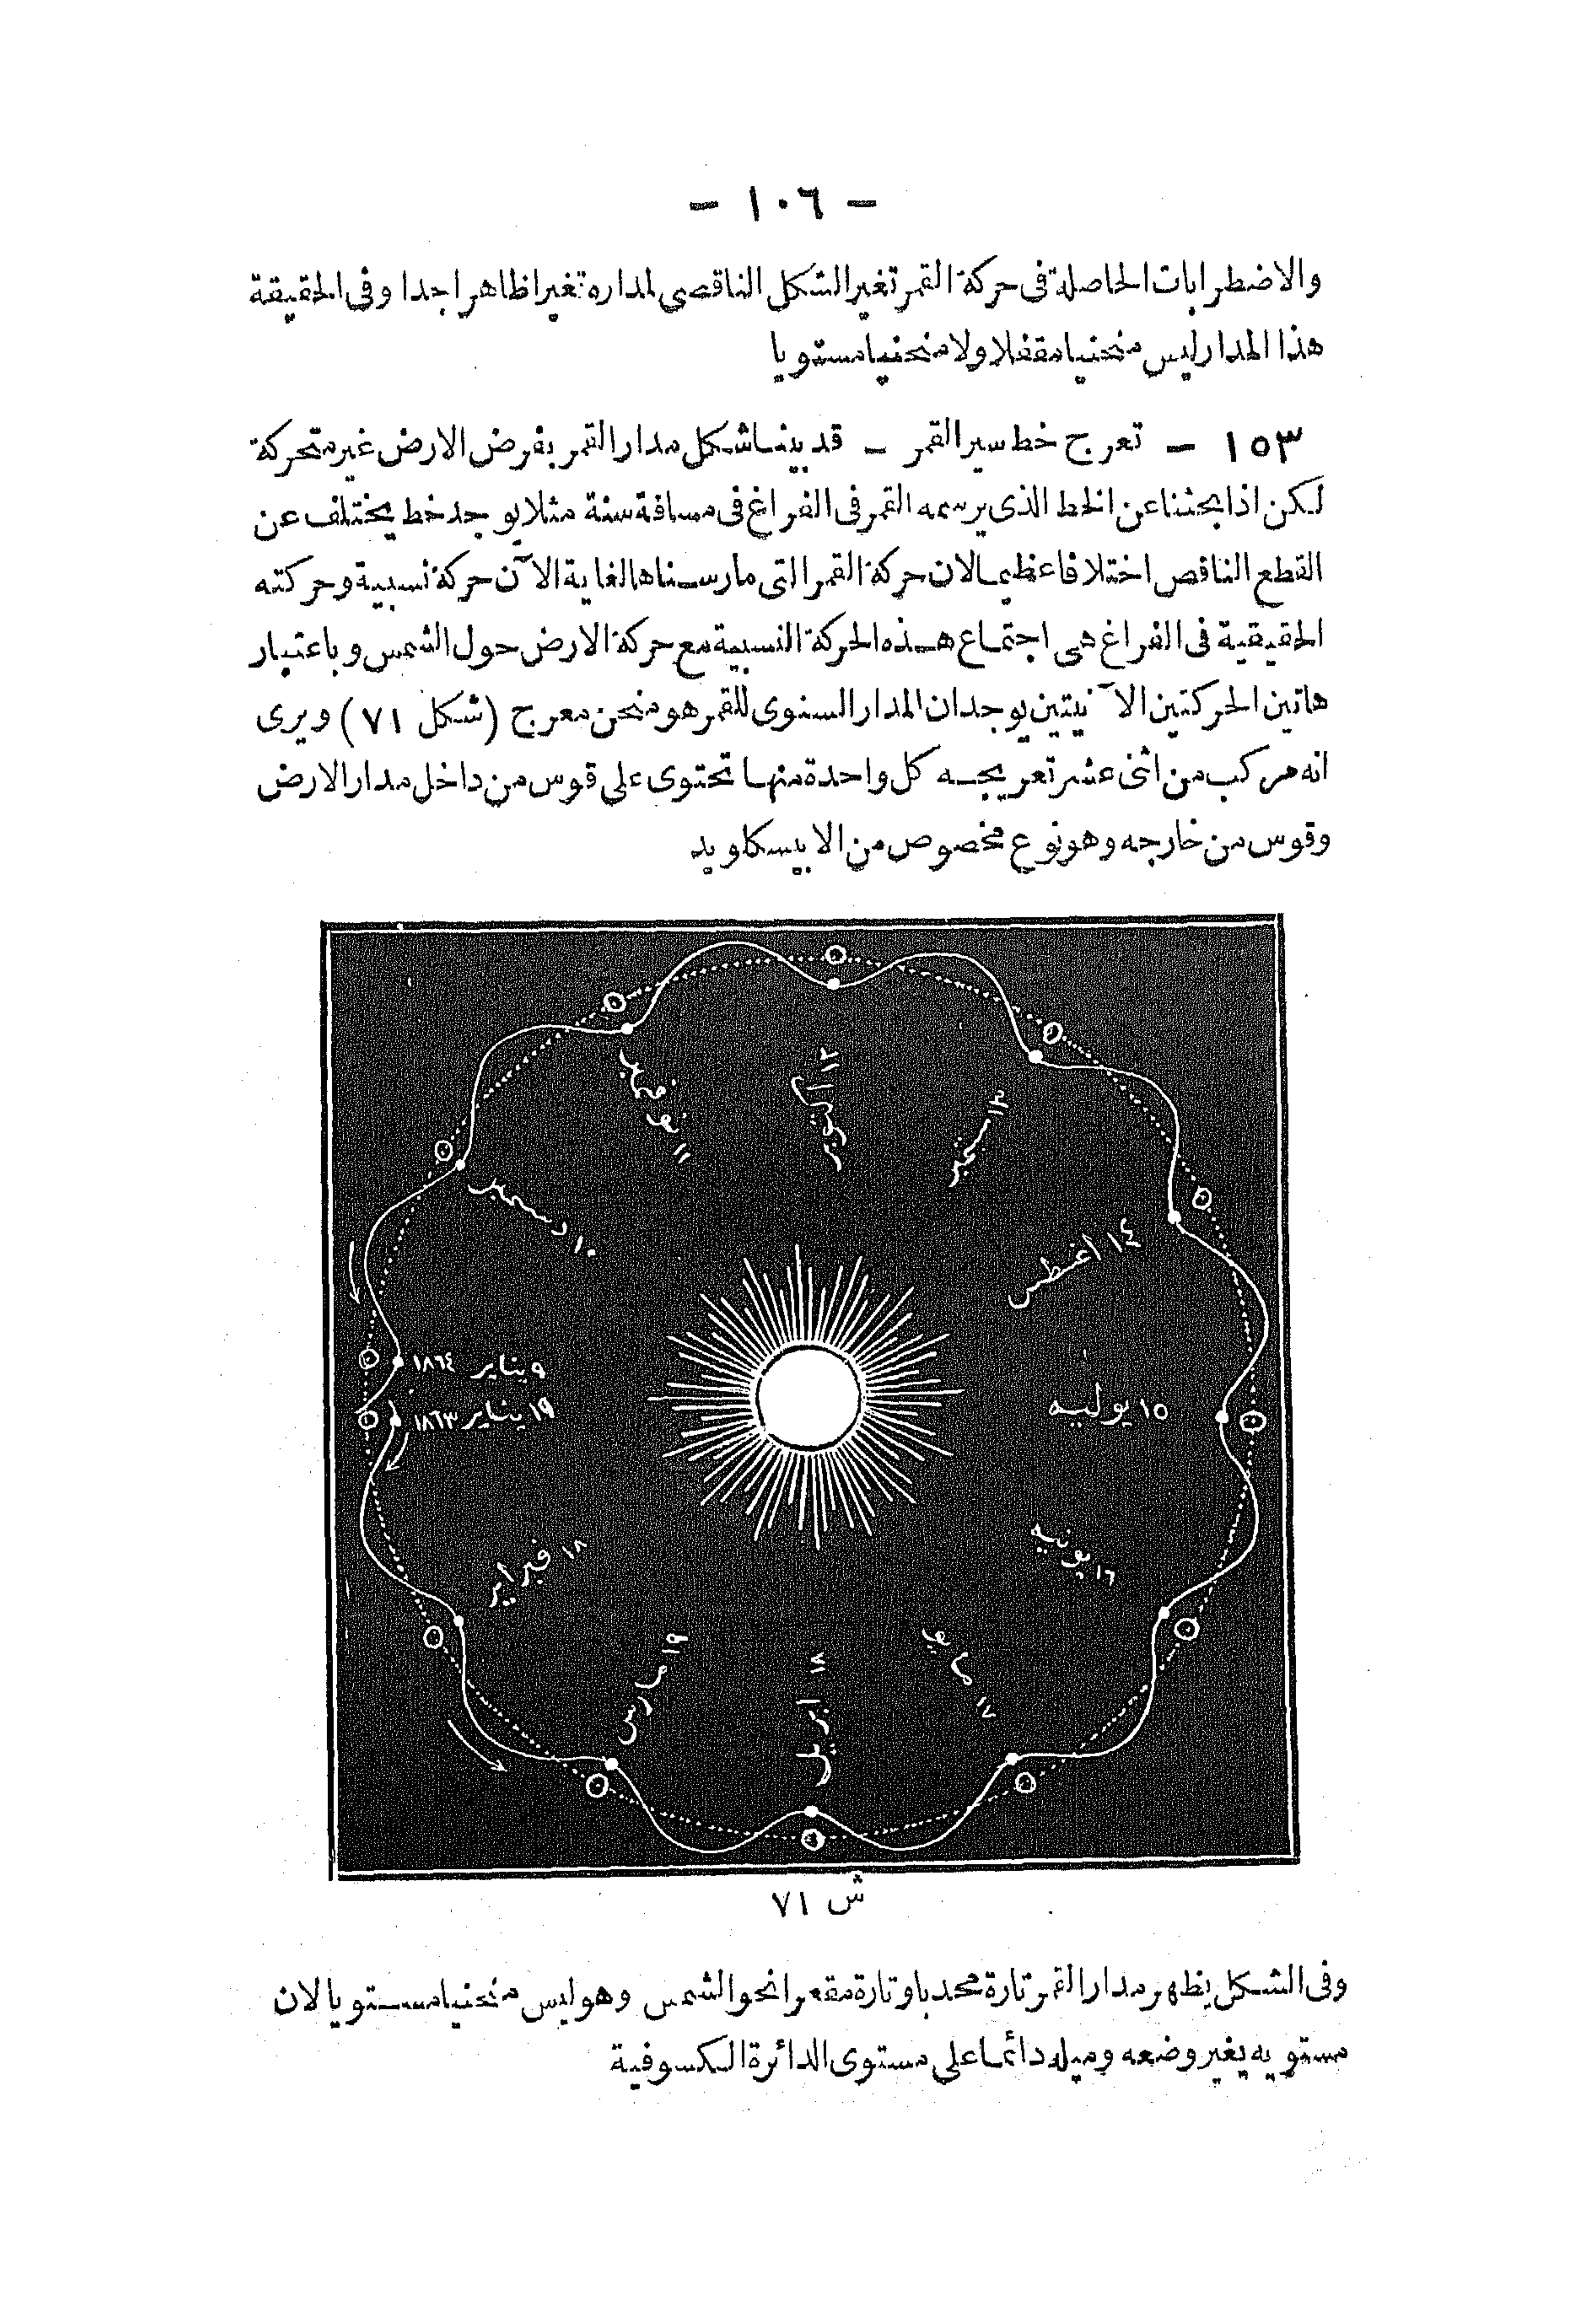 - ١٠٦ -
والاضطرابات الحاصلة فى حركة القمر تغير الشكل الناقصى لمداره تغيرا ظاهرا جدا وفى الحقيقة
هذا المدار ليس منحنيا مقفلا ولا منحنيا مستويا
١٥٣ - تعرج خط سير القمر - قد بينا شكل مدار القمر بفرض الارض غير متحركة
لكن اذا بحثنا عن الخط الذى يرسمه القمر فى الفراغ فى مسافة سنة مثلا يوجد خط يختلف عن
القطع الناقص اختلافا عظيما لان حركة القمر التى مارسناها لغاية الآن حركة نسبية وحركته
الحقيقية فى الفراغ هى اجتماع هذه الحركة النسبية مع حركة الارض حول الشمس وباعتبار
هاتين الحركتين الآنيتين يوجد ان المدار السنوى للقمر هو منحن معرج (شكل ٧١) ويرى
انه مركب من اثنى عشر تعريجه كل واحدة منها تحتوى على قوس من داخل مدار الارض
وقوس من خارجه وهو نوع مخصوص من الابيسكاويد
١٢ اكتوبر
١١ نوفمبر
١٣ سبتمبر
١٠ دسمبر
١٤ اغسطس
٩ يناير ١٨٦٤
١٩ يناير ١٨٦٣
١٥ يوليه
١٨ فبراير
١٦ يونيه
١٩ مارس
١٨ ابريل
١٧ مايو
ش ٧١
وفى الشكل يظهر مدار القمر تارة محدبا وتارة مقعرا نحو الشمس وهو ليس منحنيا مستويا لان
مستويه يغير وضعه وميله دائما على مستوى الدائرة الكسوفية